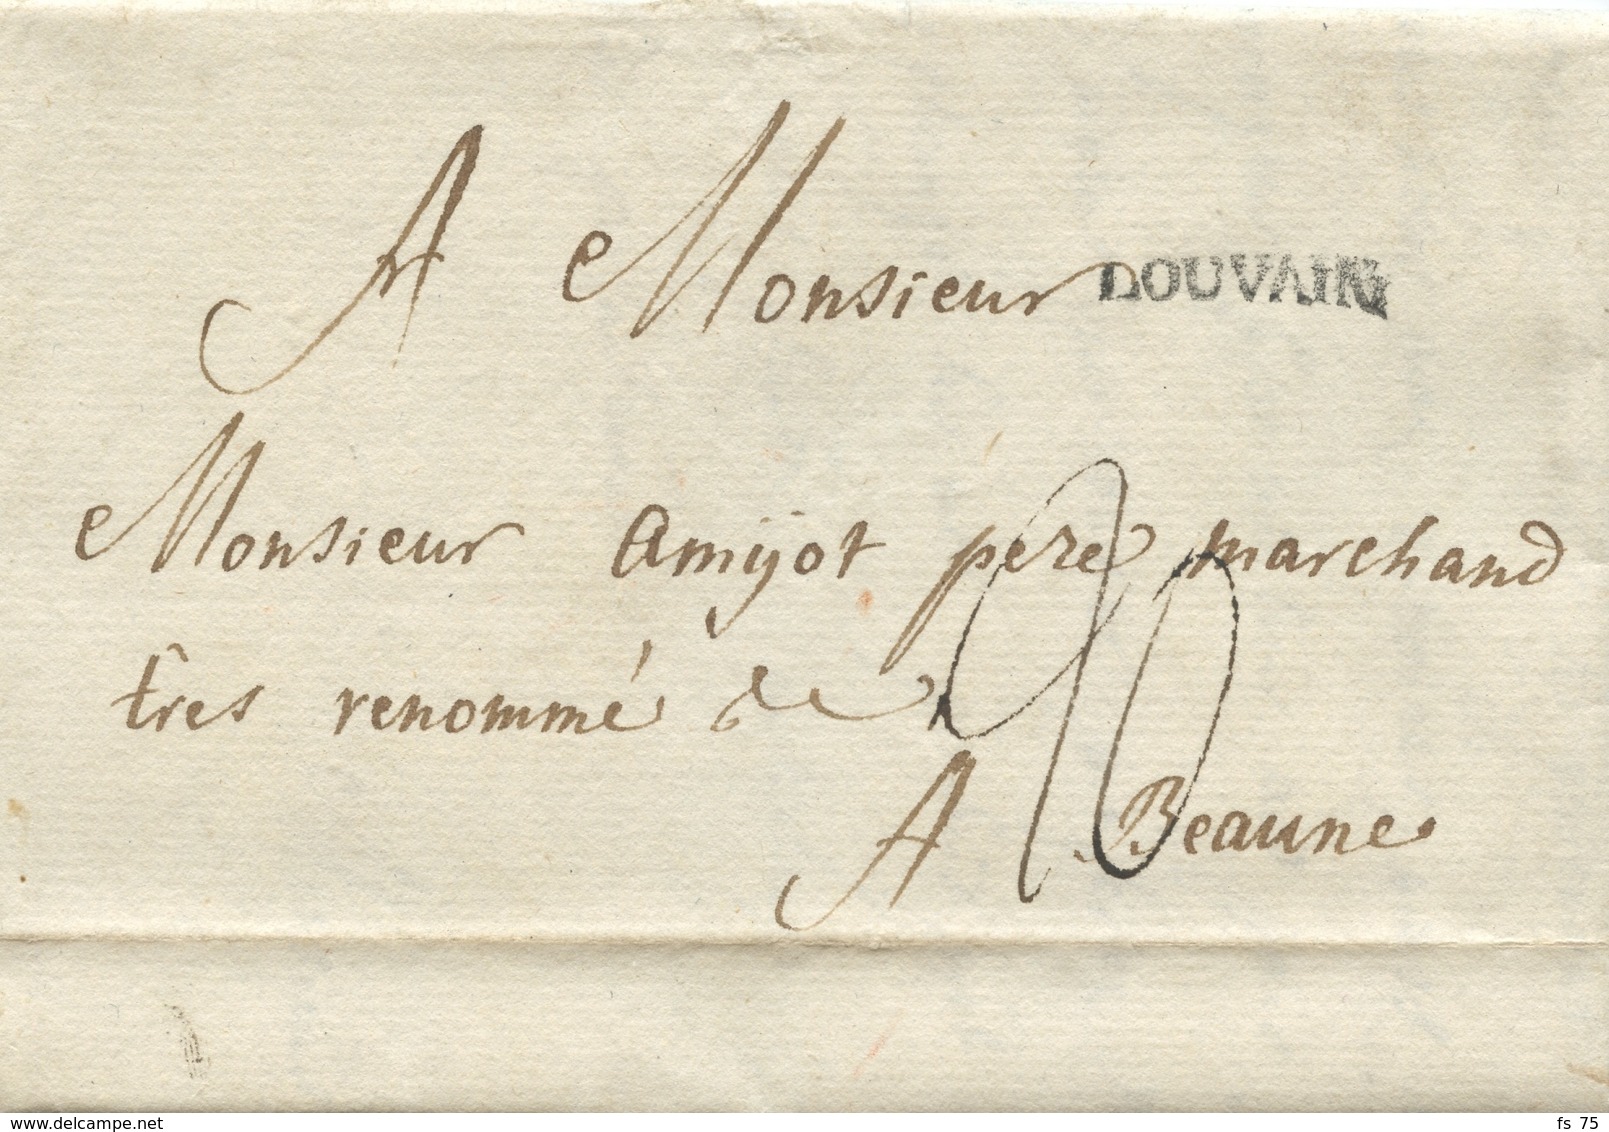 A Monsieur LOUVAIN
Monsieur amijot pere marchand
tres renommé de
A Beaune
delcampe.net
fs 75